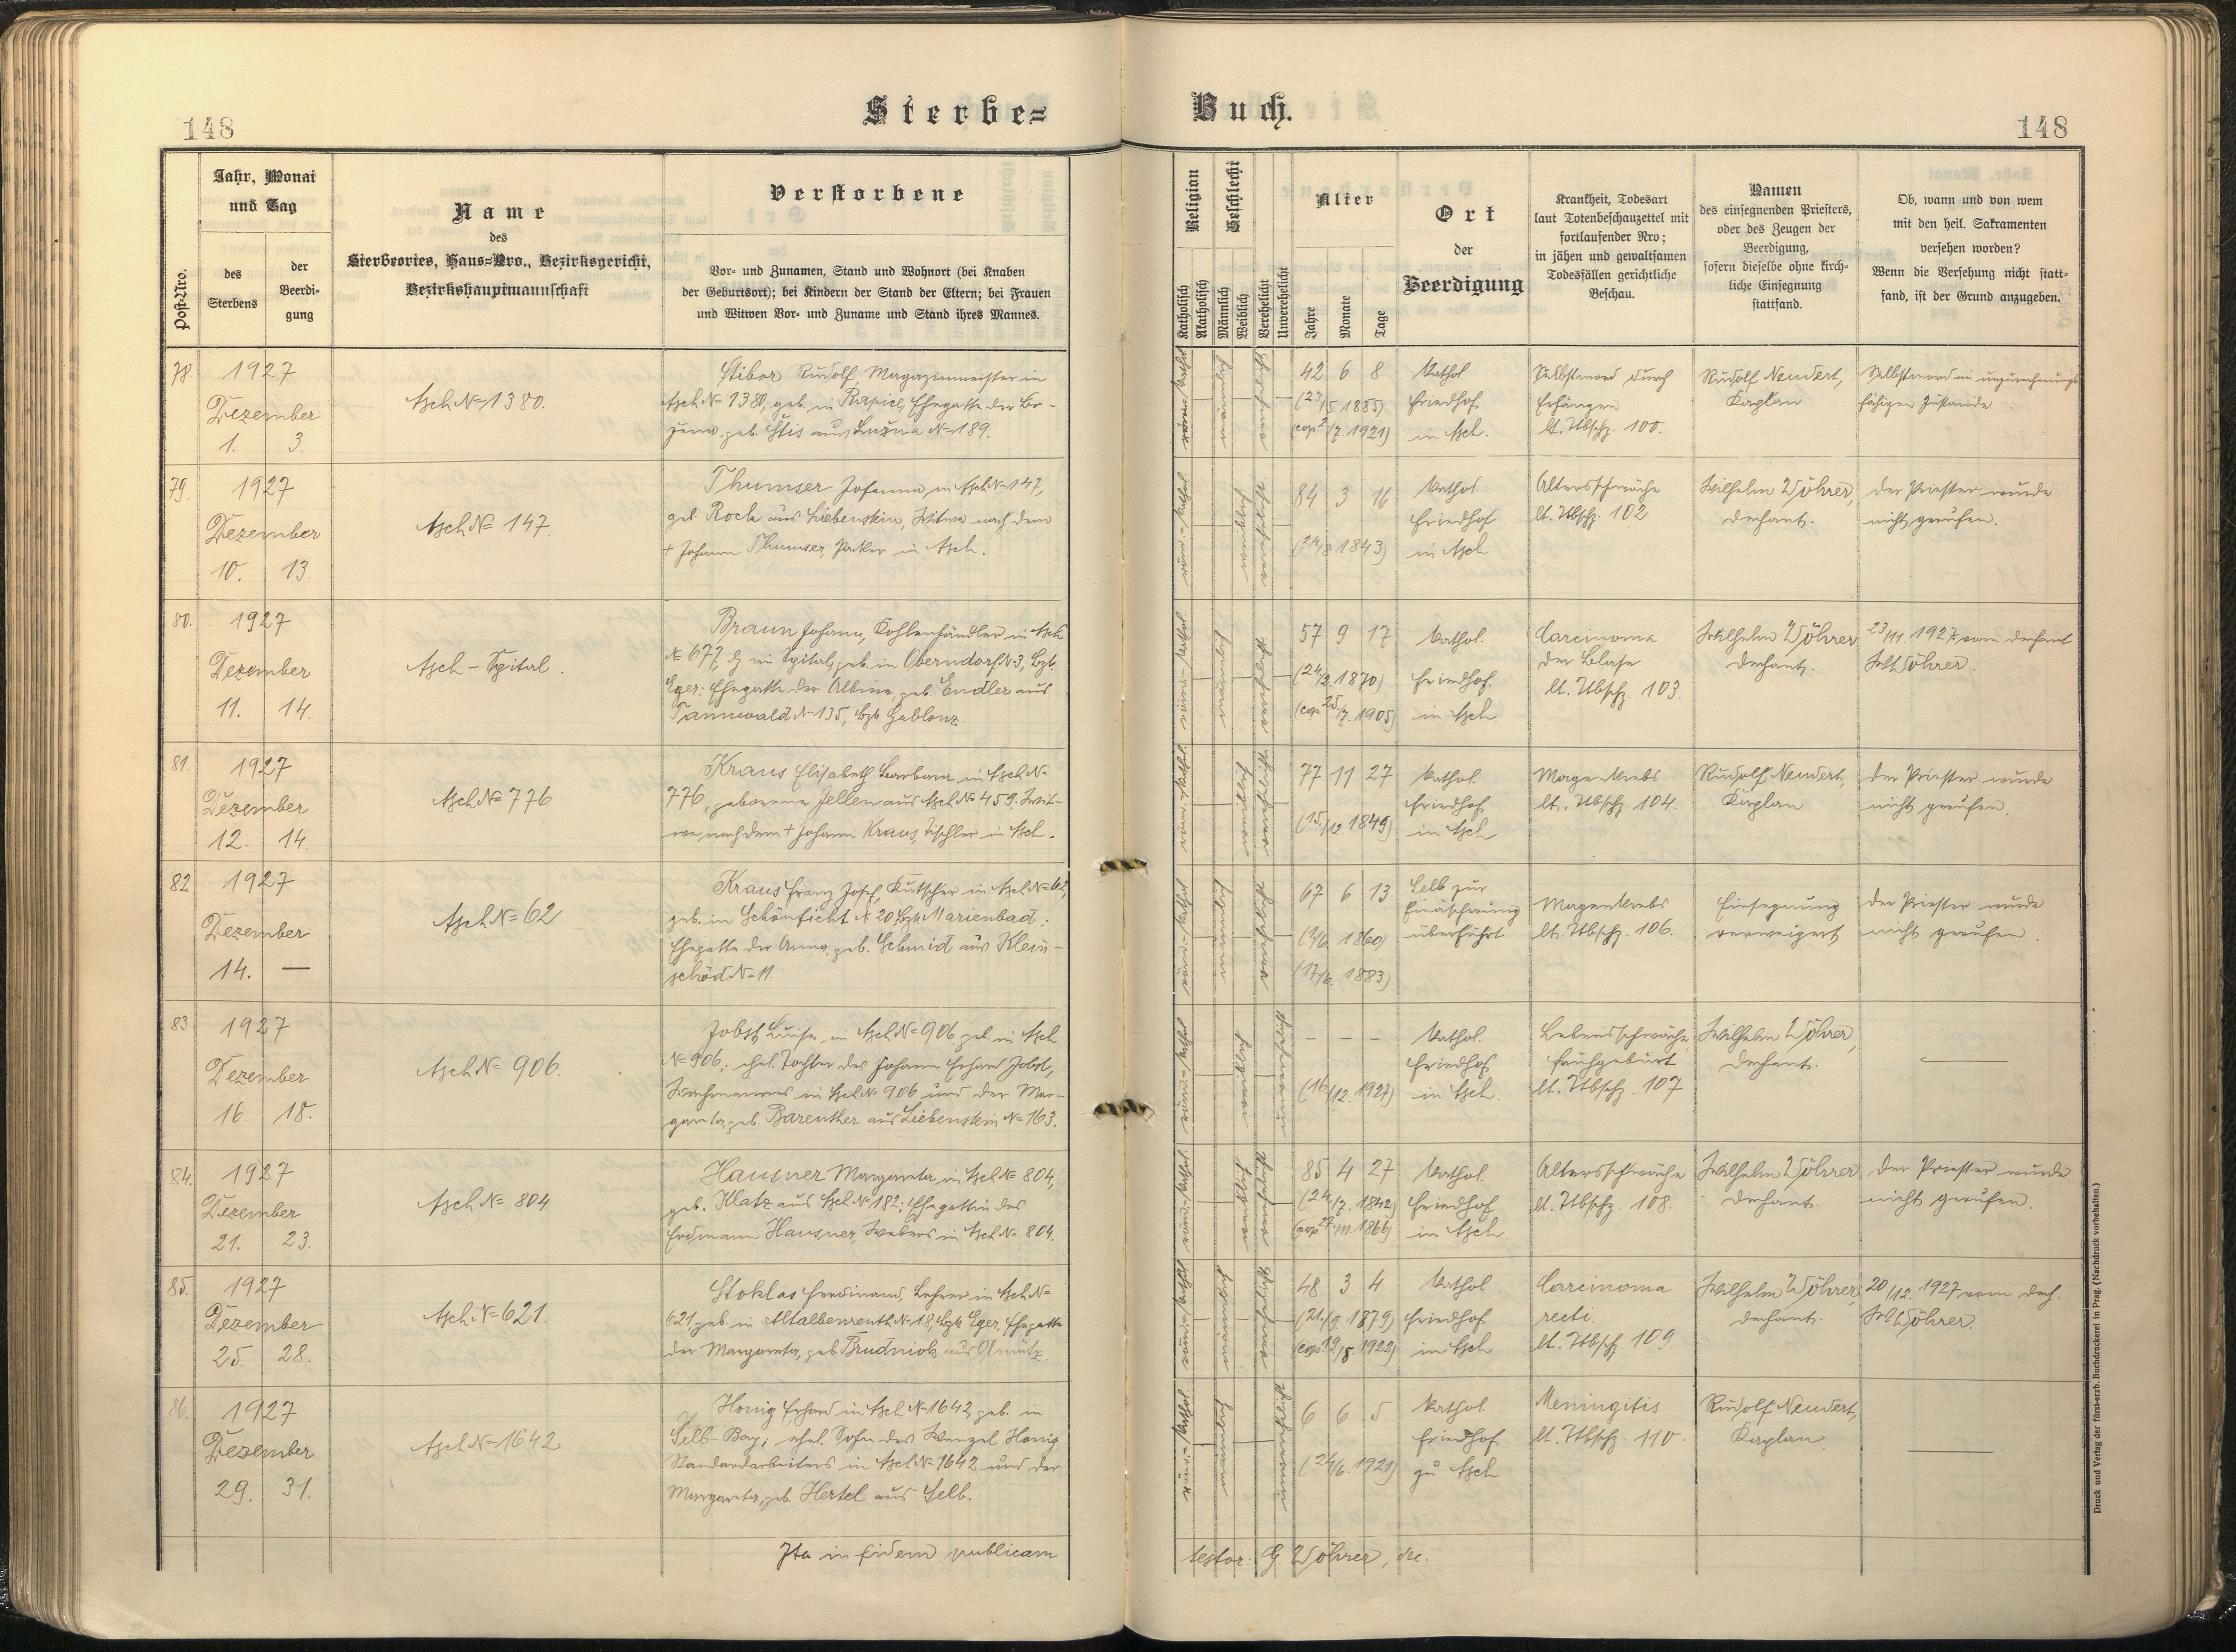 148
Sterbe=
Buch.
148
Post-Nro.
Jahr, Monat
und Tag
des
Sterbens
der
Beerdi-
gung
Name
des
Sterbeortes, Haus=Nro., Bezirksgericht,
Bezirkshauptmannschaft
Verstorbene
Vor- und Zunamen, Stand und Wohnort (bei Knaben
der Geburtsort); bei Kindern der Stand der Eltern; bei Frauen
und Witwen Vor- und Zuname und Stand ihres Mannes.
Religion
Katholisch
Akatholisch
Geschlecht
Männlich
Weiblich
Verehelicht
Unverehelicht
Alter
Jahre
Monate
Tage
Ort
der
Beerdigung
Krankheit, Todesart
laut Totenbeschauzettel mit
fortlaufender Nro;
in jähen und gewaltsamen
Todesfällen gerichtliche
Beschau.
Namen
des einsegnenden Priesters,
oder des Zeugen der
Beerdigung,
sofern dieselbe ohne kirch-
liche Einsegnung
stattfand.
Ob, wann und von wem
mit den heil. Sakramenten
versehen worden?
Wenn die Versehung nicht statt-
fand, ist der Grund anzugeben.
78.
1927
Dezember
1. 3.
Asch N= 1380.
Stibor Rudolf, Magazinmeister in
Asch N= 1380, geb. in Rapice, Ehegatte der Bo-
žena, geb. Stis aus Lužna N= 189.
42 6 8
(23/5 1885)
(cop. 2/7. 1921)
Kathol
Friedhof
in Asch.
Selbstmord durch
Erhängen
lt. Ttbschz. 100.
Rudolf Neudert,
Kaplan
Selbstmord in unzurechnungs
fähigen Zustande
79.
1927
Dezember
10. 13.
Asch N= 147.
Thumser Johanna, in Asch N= 147,
geb. Rock aus Liebenstein, Witwe nach dem
+ Johann Thumser, Packer in Asch.
84 3 16
(24/8 1843)
Kathol
Friedhof
in Asch
Altersschwäche
lt. Ttbschz. 102
Wilhelm Wöhrer,
Dechant.
Der Priester wurde
nicht gerufen.
80.
1927
Dezember
11. 14.
Asch - Spital.
Braun Johann, Kohlenhändler in Asch
N= 677, dz im Spital, geb. in Oberndorf N= 3, Bzk.
Eger; Ehegatte der Albine, geb. Endler aus
Tannwald N= 135, Bzk Gablonz.
57 9 17
(24/2. 1870)
(cop 25/7. 1905)
Kathol.
Friedhof.
in Asch
Carcinoma
der Blase
lt. Ttbschz. 103.
Wilhelm Wöhrer
Dechant.
23/11. 1927 vom Dechant
Wilh Wöhrer.
81.
1927
Dezember
12. 14.
Asch N= 776
Kraus Elisabeth Barbara in Asch N=
776, geborene Jellen aus Asch N= 459. Wit-
we nach dem + Johann Kraus, Tischler in Asch.
77 11 27
(15./12 1849)
Kathol.
Friedhof
in Asch
Magenkrebs
lt. Ttbschz. 104.
Rudolf Neudert,
Kaplan
Der Priester wurde
nicht gerufen.
82
1927
Dezember
14. —
Asch N= 62
Kraus Franz Josef, Kutscher in Asch N= 62,
geb. in Schönficht N= 20 Bzk Marienbad;
Ehegatte der Anna, geb. Schmid aus Klein-
schöd N= 11.
67 6 13
(1/6 1860)
(17/6. 1883)
Selb zur
Einäscherung
überführt
Magenkrebs
lt. Ttbschz. 106.
Einsegnung
verweigert
Der Priester wurde
nicht gerufen.
83
1927
Dezember
16. 18.
Asch N= 906.
Jobst Luise, in Asch N= 906 geb. in Asch
N= 906; ehel. Tochter des Johann Erhard Jobst,
Wachmannes in Asch N= 906 und der Mar-
gareta, geb. Bareuther aus Liebenstein N= 163.
- - -
(16./12. 1927)
Kathol.
Friedhof
in Asch.
Lebensschwäche,
Frühgeburt
lt. Ttbschz. 107
Wilhelm Wöhrer,
Dechant.
—
84.
1927
Dezember
21. 23.
Asch N= 804
Hausner Margareta, in Asch N= 804,
geb. Klatz aus Asch N= 182; Ehegattin des
Erdmann Hausner, Webers in Asch N= 804.
85 4 27
(24./7. 1842)
Kathol.
Friedhof
in Asch
Altersschwäche
lt. Ttbschz. 108.
Wilhelm Wöhrer
Dechant.
Der Priester wurde
nicht gerufen.
85.
1927
Dezember
25. 28.
Asch N= 621.
Stoklas Ferdinand, Lehrer in Asch N=
621 geb in Altalbenreuth N= 18, Bzk Eger, Ehegatte
der Margareta, geb. Prudniok aus Olmütz.
48 3 4
(21./9. 1879)
(cop. 19/8 1922)
Kathol
Friedhof
in Asch
Carcinoma
recti.
lt. Ttbsch. 109.
Wilhelm Wöhrer,
Dechant.
20/12. 1927 vom Dech.
Wilh Wöhrer.
86.
1927
Dezember
29. 31.
Asch N= 1642
Honig Erhard in Asch N= 1642, geb. in
Selb - Bay; ehel. Sohn des Wenzel Honig
Standardarbeiters in Asch N= 1642 und der
Margareta, geb. Hertel aus Selb.
6 6 5
(24/6. 1921)
Kathol
Friedhof
zu Asch
Meningitis
lt. Ttbschz. 110.
Rudolf Neudert,
Kaplan
—
Ita in fidem publicam
testor. Wöhrer, dec.
Druck und Verlag der fürst-erzb. Buchdruckerei in Prag. (Nachdruck vorbehalten.)